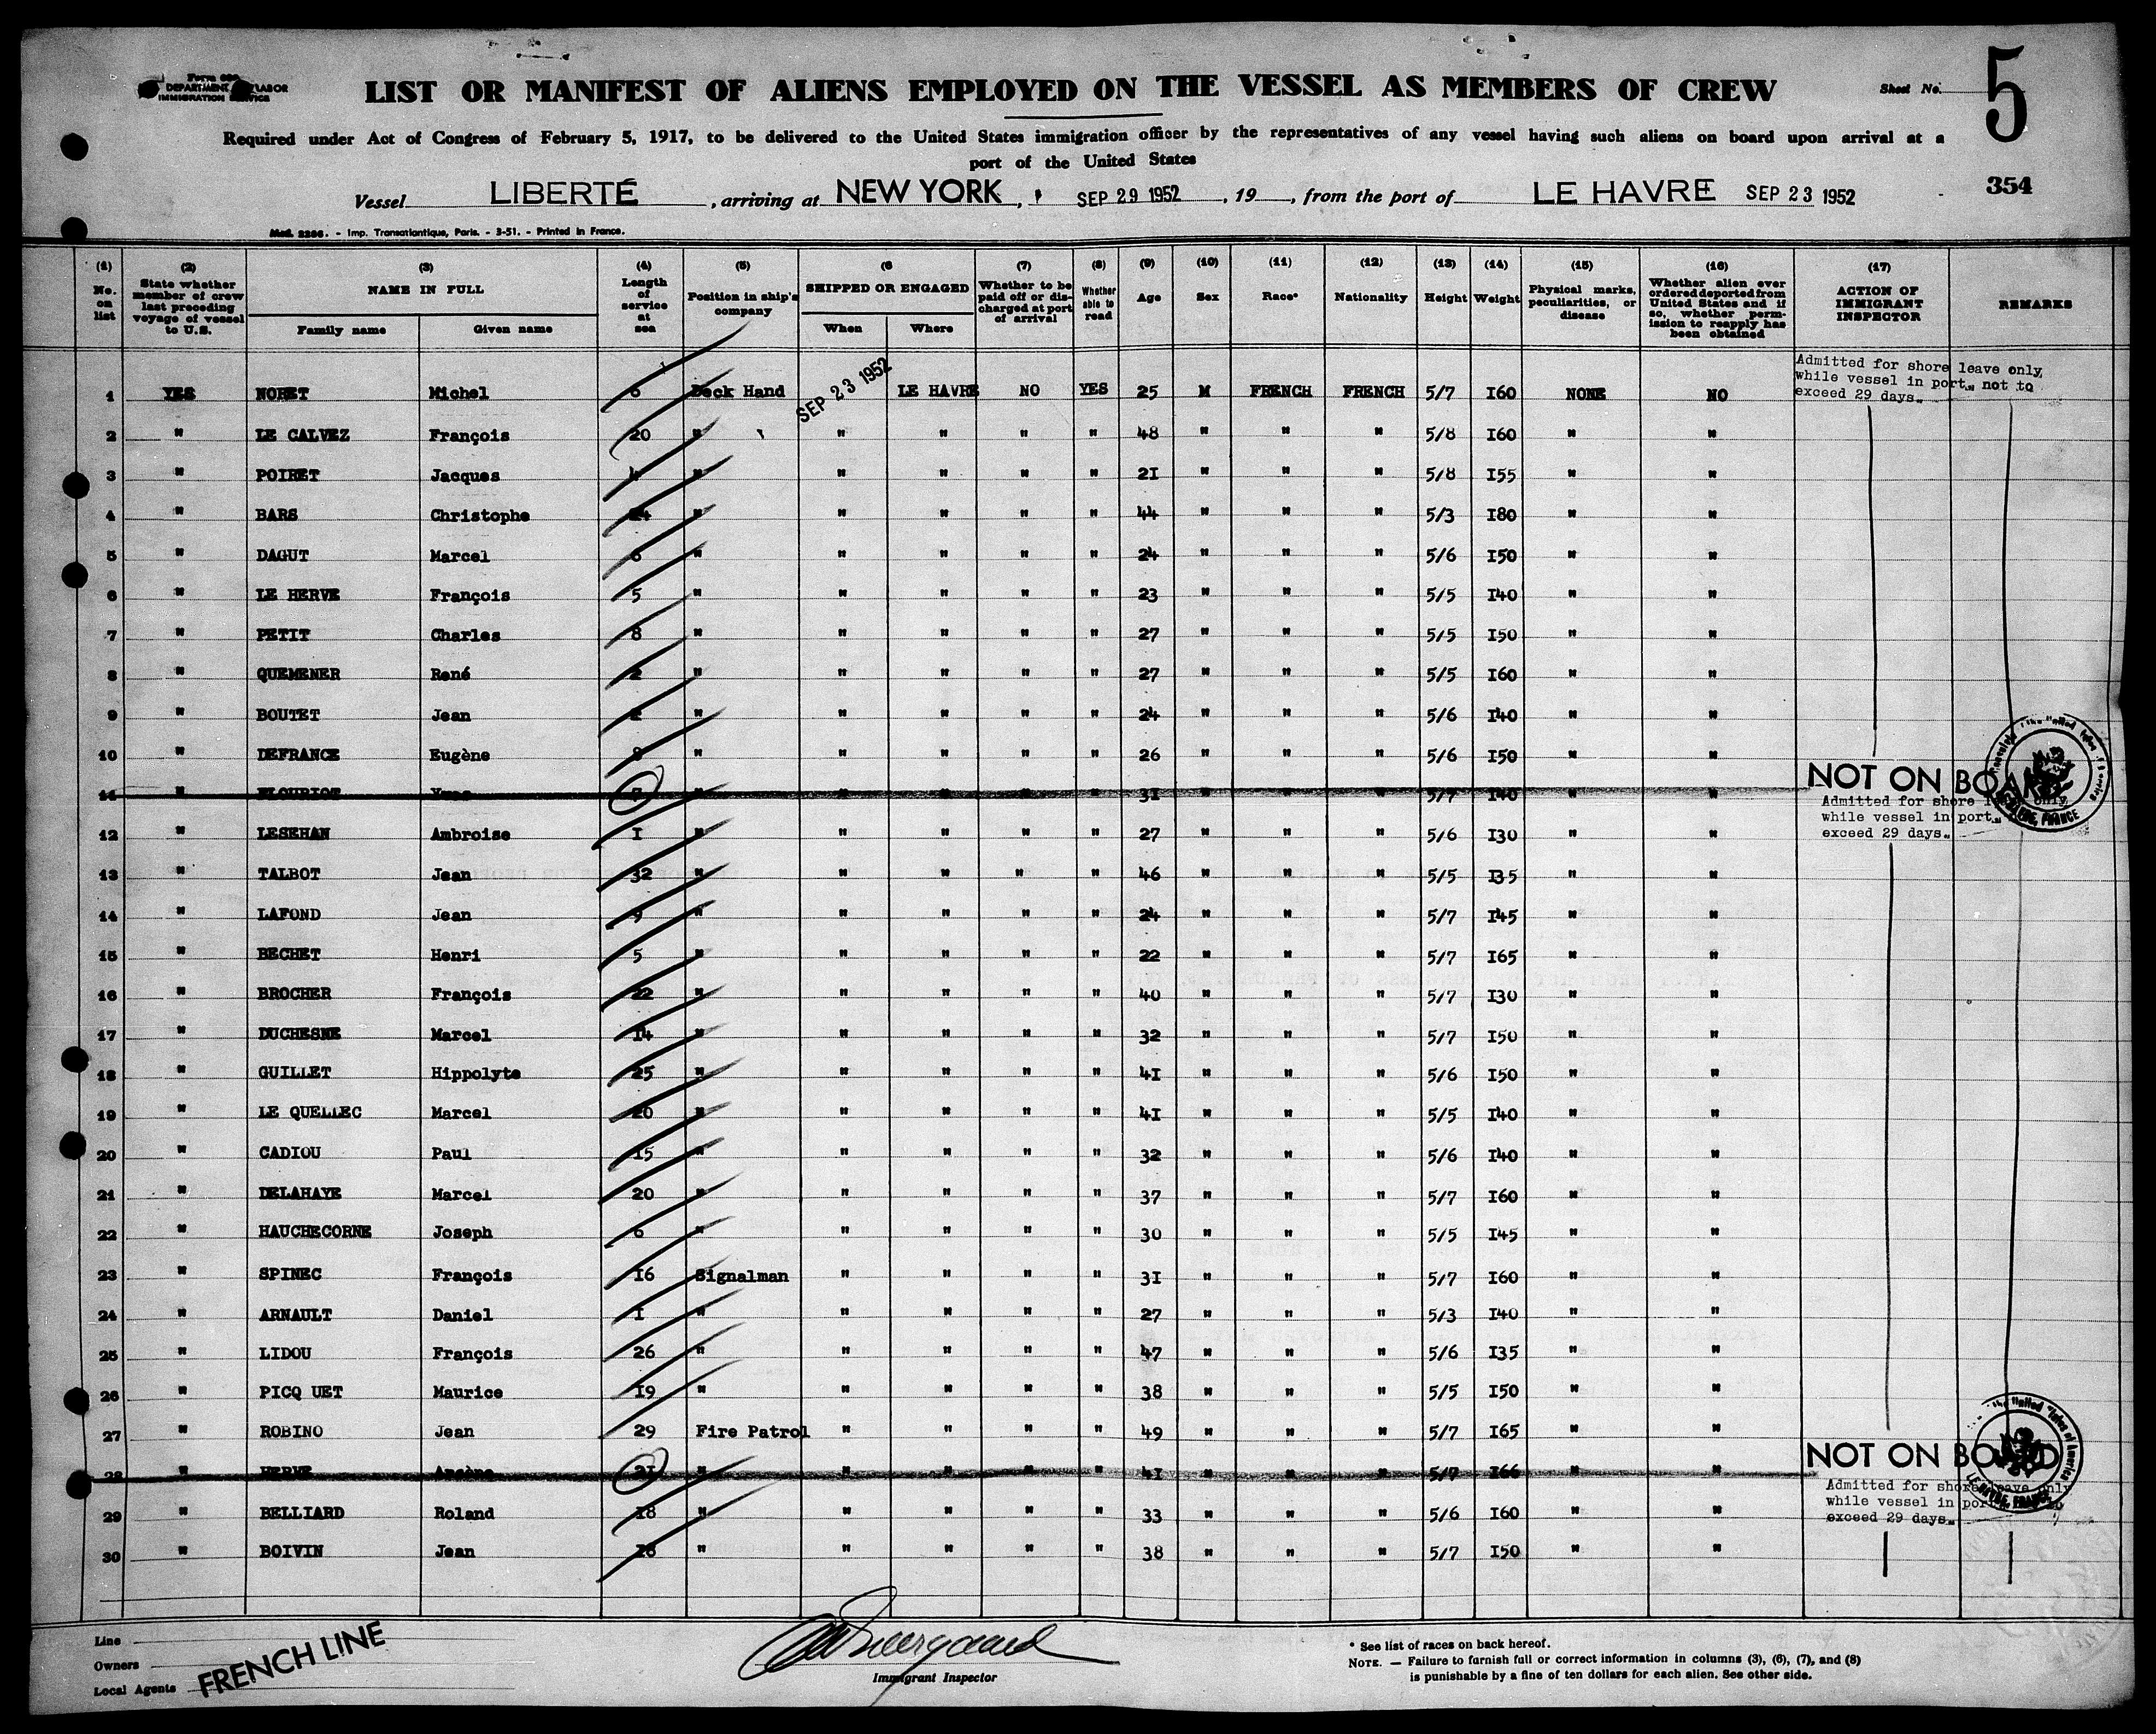 Form 680
DEPARTMENT LABOR
IMMIGRATION SERVICE
LIST OR MANIFEST OF ALIENS EMPLOYED ON THE VESSEL AS MEMBERS OF CREW
Sheet No. 5
Required under Act of Congress of February 5, 1917, to be delivered to the United States immigration officer by the representatives of any vessel having such aliens on board upon arrival at a
port of the United States
354
Vessel LIBERTÉ , arriving at NEW YORK , SEP 29 1952 , 19 , from the port of LE HAVRE SEP 23 1952
Mod. 2286. - Imp. Transatlantique, Paris. - 3-51. - Printed in France.
(1) No. on list
(2) State whether member of crew last preceding voyage of vessel to U.S.
(3) NAME IN FULL Family name Given name
(4) Length of service at sea
(5) Position in ship's company
(6 SHIPPED OR ENGAGED When Where
(7) Whether to be paid off or discharged at port of arrival
(8) Whether able to read
(9) Age
(10) Sex
(11) Race*
(12) Nationality
(13) Height
(14) Weight
(15) Physical marks, peculiarities, or disease
(16) Whether alien ever ordered deported from United States and if so, whether permission to reapply has been obtained
(17) ACTION OF IMMIGRANT INSPECTOR
REMARKS
Admitted for shore leave only
while vessel in port, not to
exceed 29 days.
1 YES NORET Michel 6 Deck Hand SEP 23 1952 LE HAVRE NO YES 25 M FRENCH FRENCH 5/7 I60 NONE NO
2 " LE CALVEZ François 20 " " " " " 48 " " " 5/8 I60 " "
3 " POIRET Jacques 4 " " " " " 2I " " " 5/8 I55 " "
4 " BARS Christophe 24 " " " " " 44 " " " 5/3 I80 " "
5 " DAGUT Marcel 6 " " " " " 24 " " " 5/6 I50 " "
6 " LE HERVE François 5 " " " " " 23 " " " 5/5 I40 " "
7 " PETIT Charles 8 " " " " " 27 " " " 5/5 I50 " "
8 " QUEMENER René 2 " " " " " 27 " " " 5/5 I60 " "
9 " BOUTET Jean 2 " " " " " 24 " " " 5/6 I40 " "
10 " DEFRANCE Eugène 8 " " " " " 26 " " " 5/6 I50 " "
NOT ON BOARD
11 " FLOURIOT Yves 7 " " " " 3I " " " 5/7 I40 " "
Admitted for shore leave only
while vessel in port,
exceed 29 days.
12 " LESEHAN Ambroise I " " " " " 27 " " " 5/6 I30 " "
13 " TALBOT Jean 32 " " " " " 46 " " " 5/5 I35 " "
14 " LAFOND Jean 9 " " " " " 24 " " " 5/7 I45 " "
15 " BECHET Henri 5 " " " " " 22 " " " 5/7 I65 " "
16 " BROCHER François 22 " " " " " 40 " " " 5/7 I30 " "
17 " DUCHESNE Marcel I4 " " " " " 32 " " " 5/7 I50 " "
18 " GUILLET Hippolyte 25 " " " " " 4I " " " 5/6 I50 " "
19 " LE QUELLEC Marcel 20 " " " " " 4I " " " 5/5 I40 " "
20 " CADIOU Paul I5 " " " " " 32 " " " 5/6 I40 " "
21 " DELAHAYE Marcel 20 " " " " " 37 " " " 5/7 I60 " "
22 " HAUCHECORNE Joseph 6 " " " " " 30 " " " 5/5 I45 " "
23 " SPINEC François I6 Signalman " " " " 3I " " " 5/7 I60 " "
24 " ARNAULT Daniel I " " " " " 27 " " " 5/3 I40 " "
25 " LIDOU François 26 " " " " " 47 " " " 5/6 I35 " "
26 " PICQ UET Maurice I9 " " " " " 38 " " " 5/5 I50 " "
27 " ROBINO Jean 29 Fire Patrol " " " " 49 " " " 5/7 I65 " "
NOT ON BOARD
28 " HERVE Arsène 2I " " " " " 4I " " " 5/7 I66 " "
Admitted for shore leave only
while vessel in port,
exceed 29 days.
29 " BELLIARD Roland I8 " " " " " 33 " " " 5/6 I60 " "
30 " BOIVIN Jean I8 " " " " " 38 " " " 5/7 I50 " "
Line
Owners
Local Agents
FRENCH LINE
Immigrant Inspector
* See list of races on back hereof.
NOTE. — Failure to furnish full or correct information in columns (3), (6), (7), and (8)
is punishable by a fine of ten dollars for each alien. See other side.